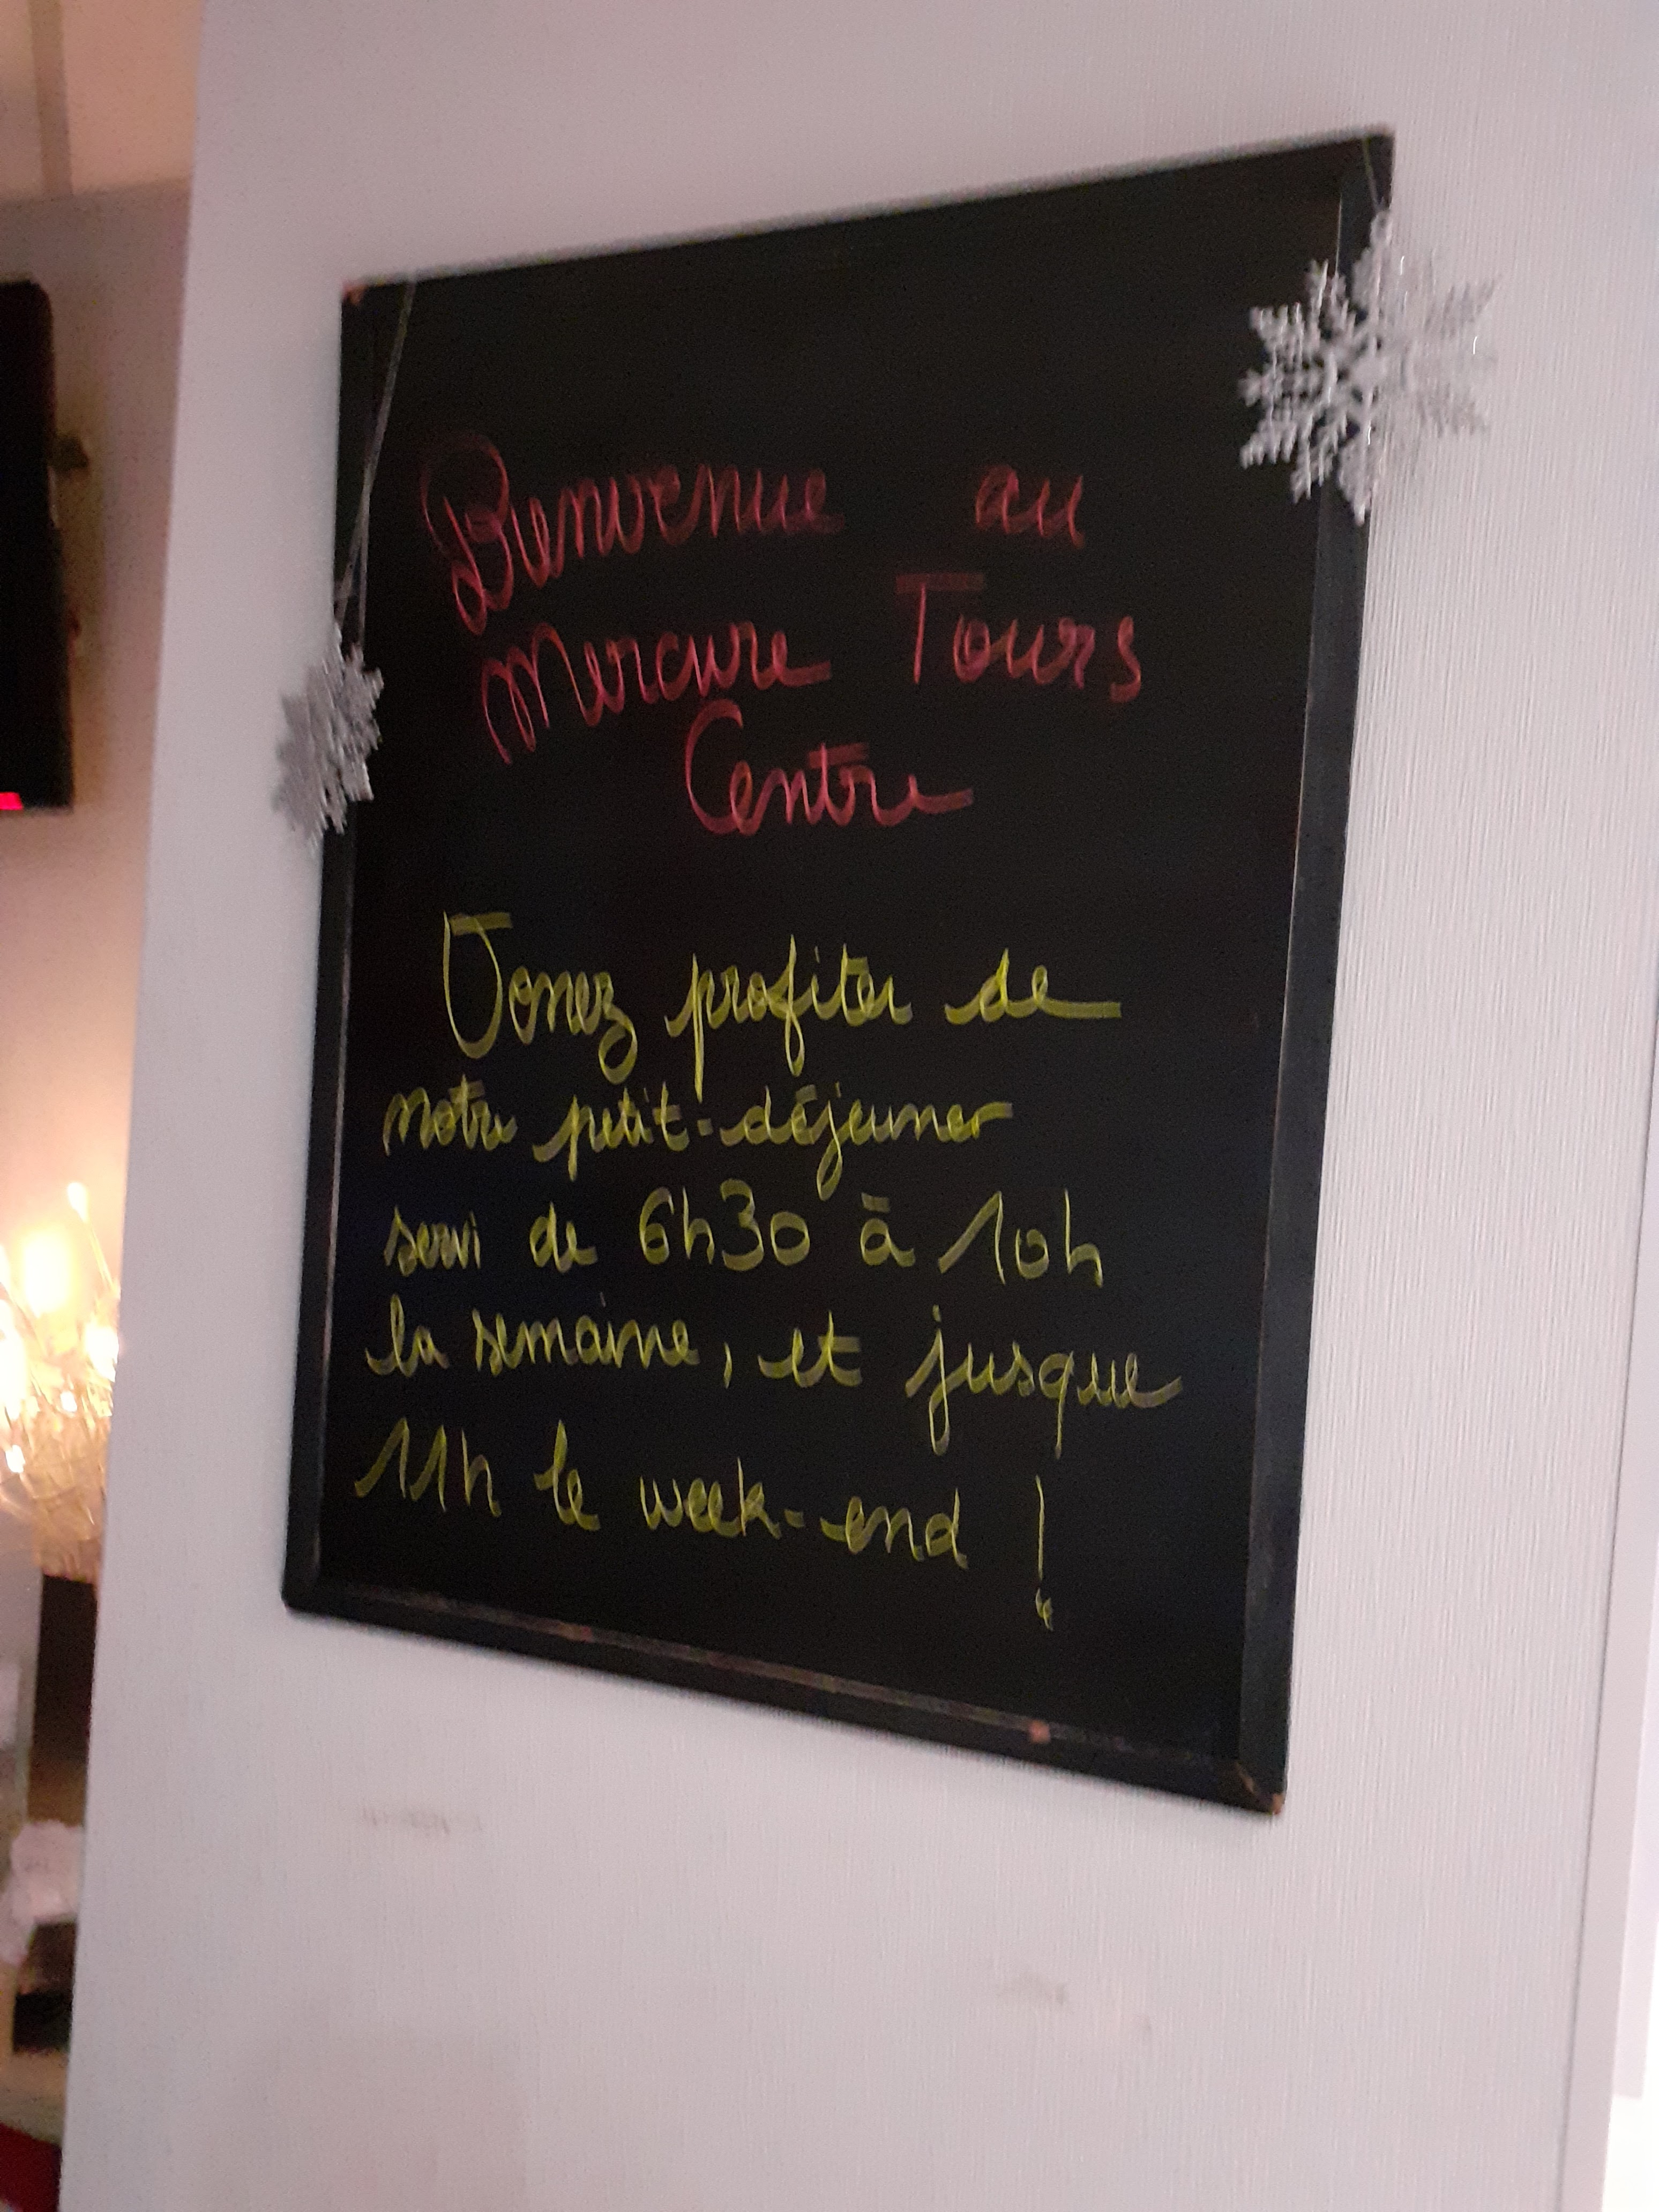 Bienvenue au
Mercure Tours
Centre
Venez profiter de
notre petit-déjeuner
servi de 6h30 à 10h
la semaine, et jusque
11h le week-end !